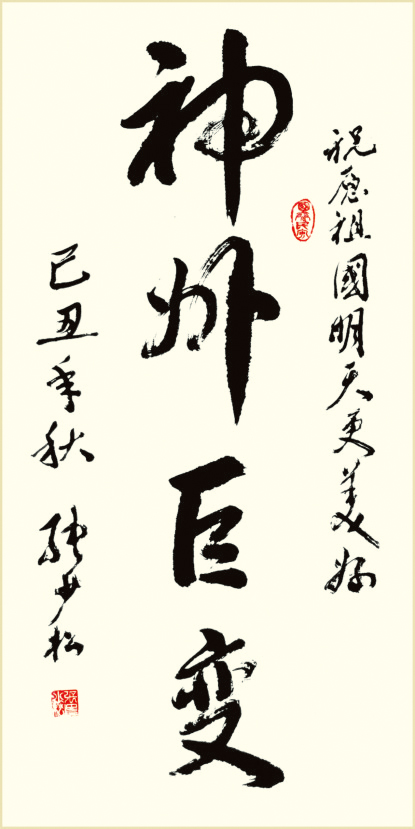 祝愿祖國明天更美好
神州巨变
己丑年秋 张少松